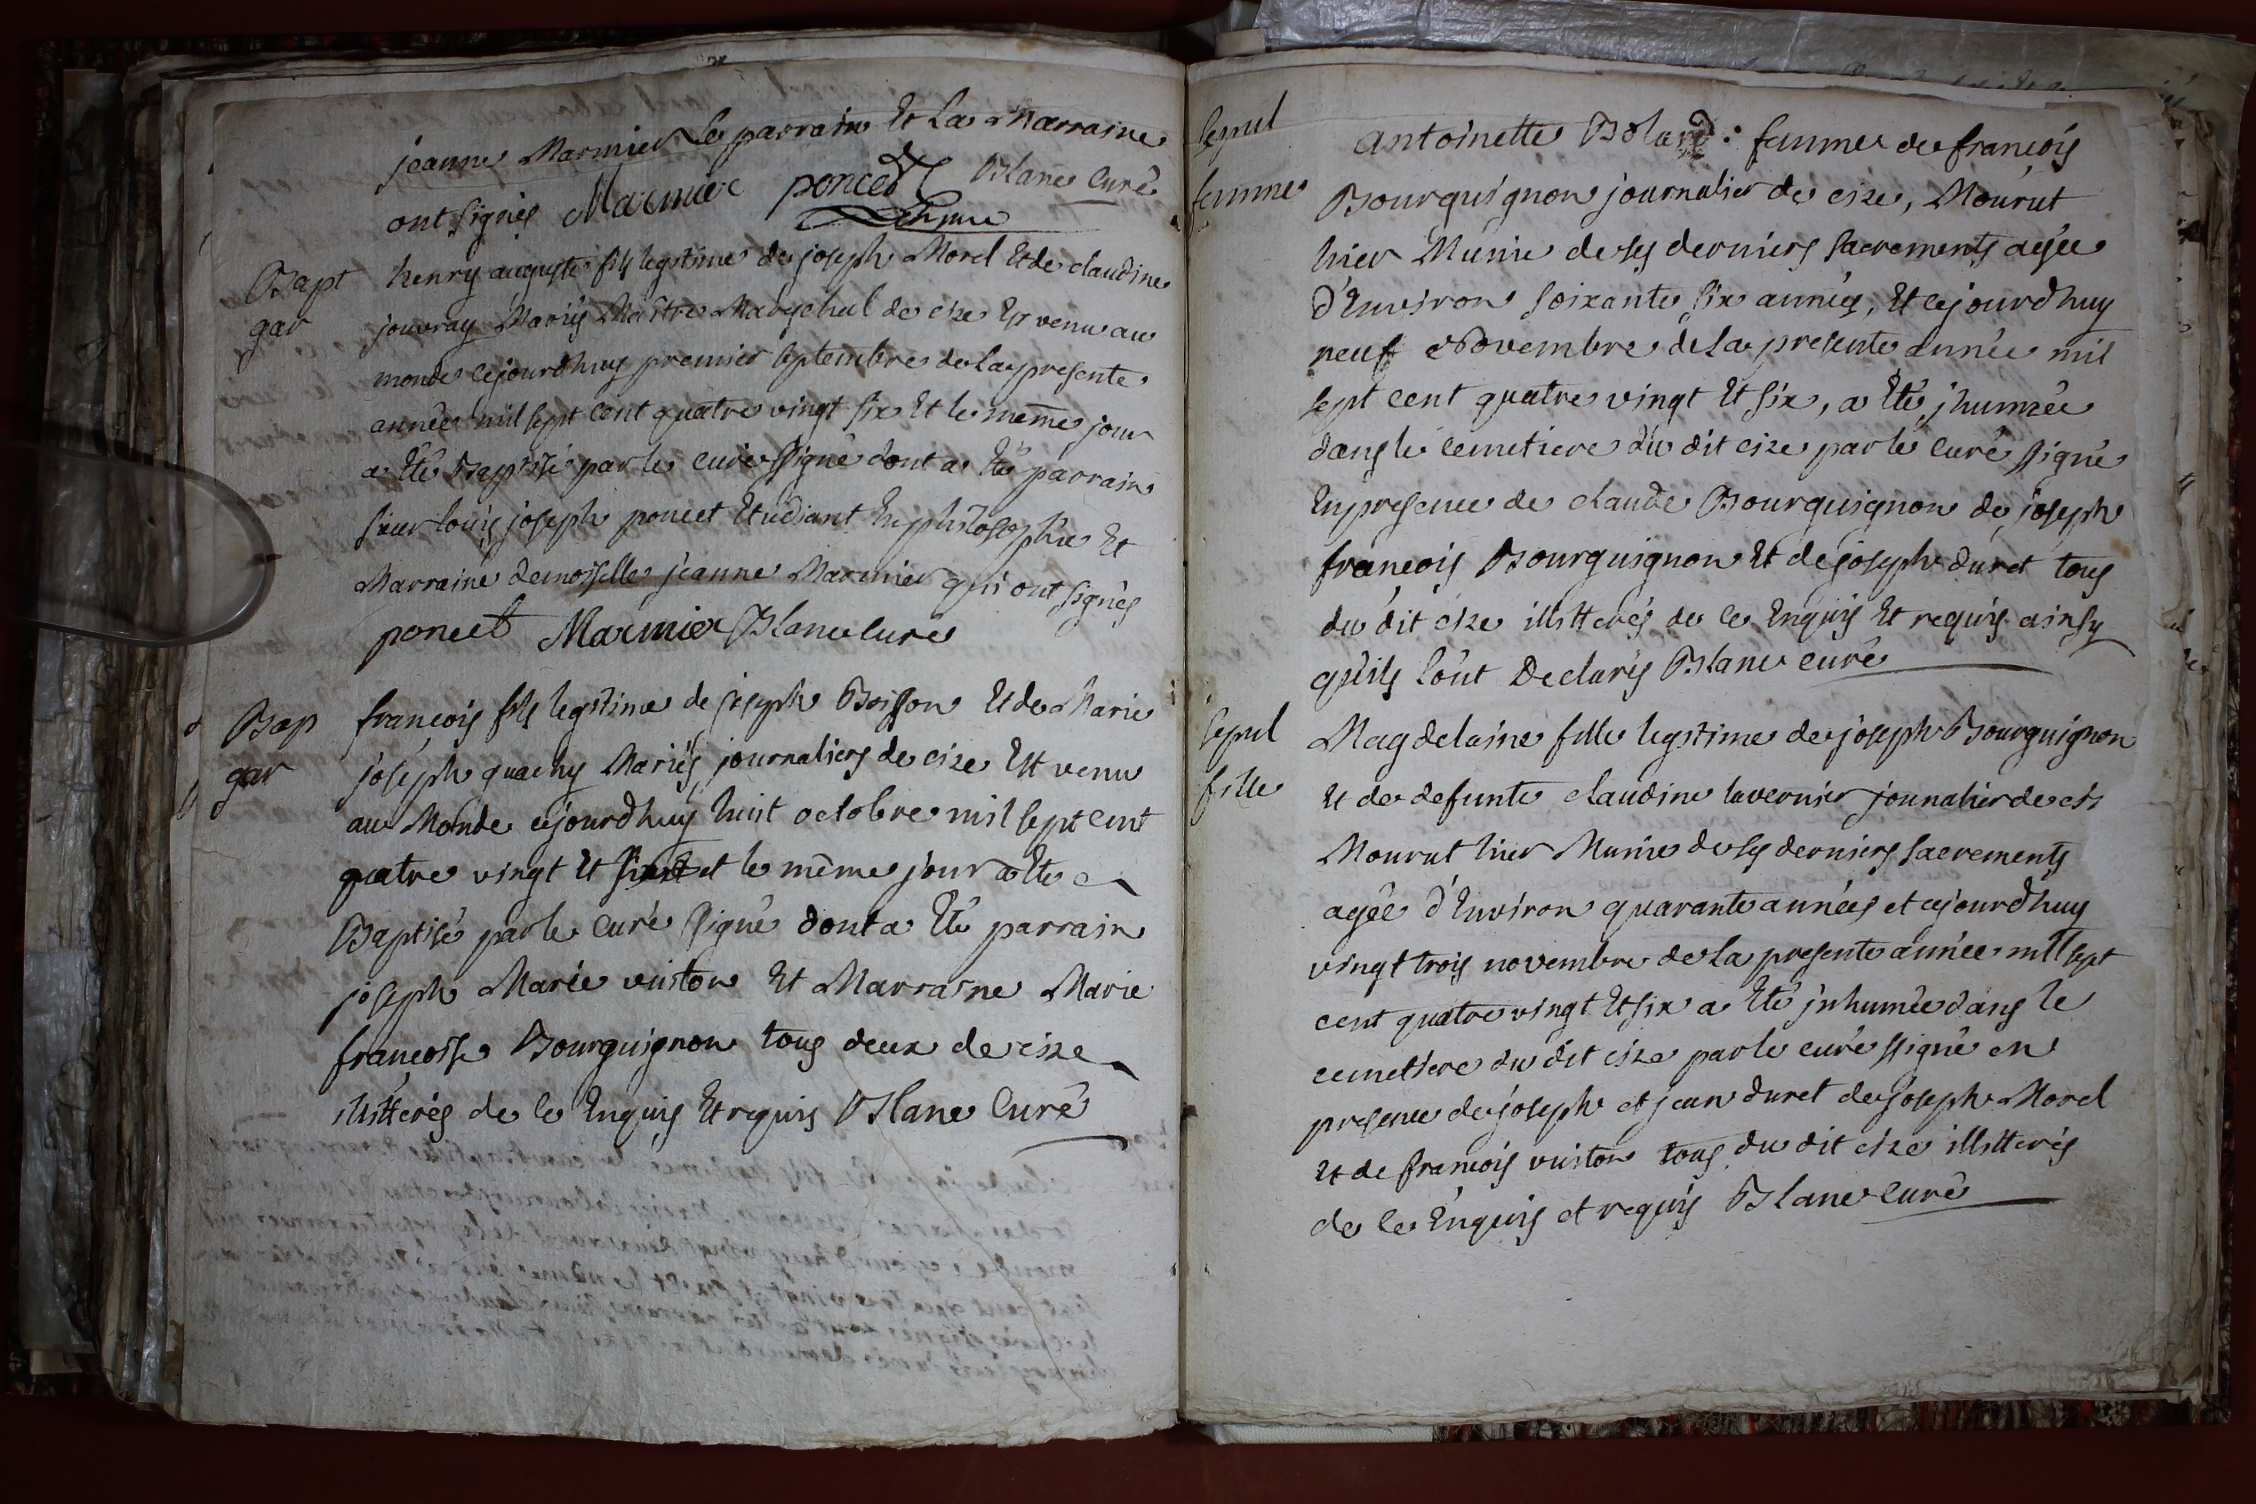 jeanne Marmier Le parrain Et La Marraine
ont signés Marmier poncet Blanc Curé
Bapt henry auguste fils legitime de joseph Morel Et de claudine
gar jouvray Mariés Maitre Maréchal de cize Est venu au
monde cejourdhuy premier septembre de La presente
année mil sept cent quatre vingt six Et le même jour
a Eté Baptisé par le curé ssigné dont a Eté parrain
sieur louis joseph poncet Etudiant En philosophie Et
Marraine demoiselle jeanne Marmier qui ont signés
poncet Marmier Blanc curé
Bap francois fils legitime de joseph Boisson Et de Marie
gar joseph quacny Mariés journaliers de cize Est venu
au Monde cejourdhuy huit octobre mil sept cent
quatre vingt Et six et le même jour a Eté
Baptisé par le curé ssigné dont a Eté parrain
joseph Marie vuiton Et Marraine Marie
francoise Bourguignon tous deux de cize
illitterés de ce Enquis Et requis Blanc Curé
sepul antoinette Bolard : femme de francois
femme Bourguignon journalier de cize, Mourut
hier Munie de ses derniers sacrements agée
d'Environ soixante six années, Et cejourdhuy
neuf Novembre de La presente année mil
sept cent quatre vingt Et six, a Eté jhumée
dans le cemetiere du dit cize par le curé ssigné
En presence de claude Bourguignon de joseph
francois Bourguignon Et de joseph duret tous
du dit cize illitterés de ce Enquis Et requis ainsy
qu'ils l'ont Declarés Blanc curé
sepul Magdelaine fille legitime de joseph Bourguignon
fille Et de defunte claudine lavernier journalier de cis
Mourut hier Munie de ses derniers sacrements
agée d'Environ quarante années et cejourdhuy
vingt trois novembre de La presente année mil sept
cent quatre vingt Et six a Eté jnhumée dans le
cemetiere du dit cize par le curé ssigné en
presence de joseph et jean duret de joseph Morel
Et de francois vuiton tous du dit cize illitterés
de ce Enquis et requis Blanc curé